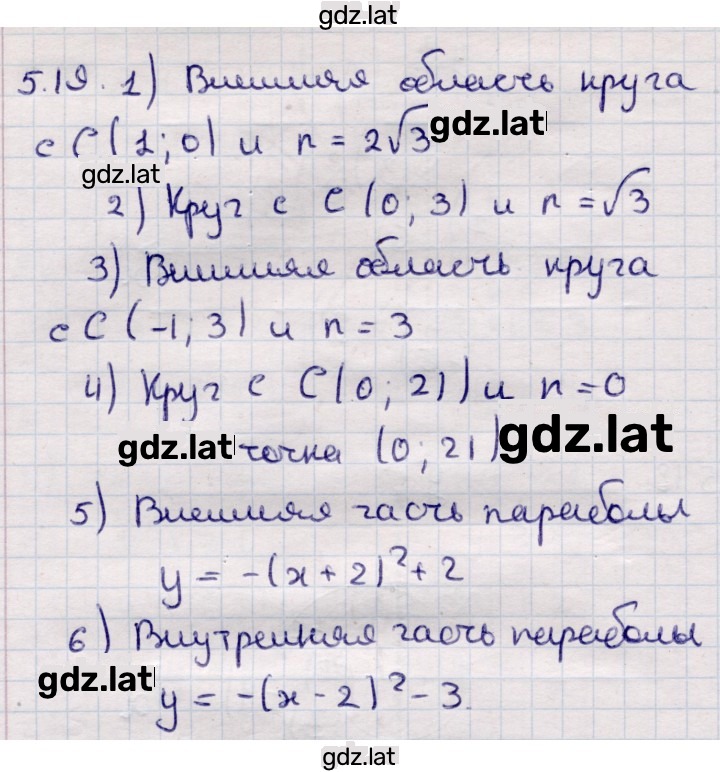 gdz.lat
5.19. 1) Внешняя область круга
с C(1; 0) и r = 2√3 gdz.lat
gdz.lat
2) Круг с C (0; 3) и r = √3
3) Внешняя область круга
с C (-1; 3) и r = 3
4) Круг с C(0; 21) и r = 0
gdz.lat точка (0; 21) gdz.lat
5) Внешняя часть параболы
y = -(x + 2)² + 2
6) Внутренняя часть параболы
gdz.lat y = -(x - 2)² - 3.
gdz.lat